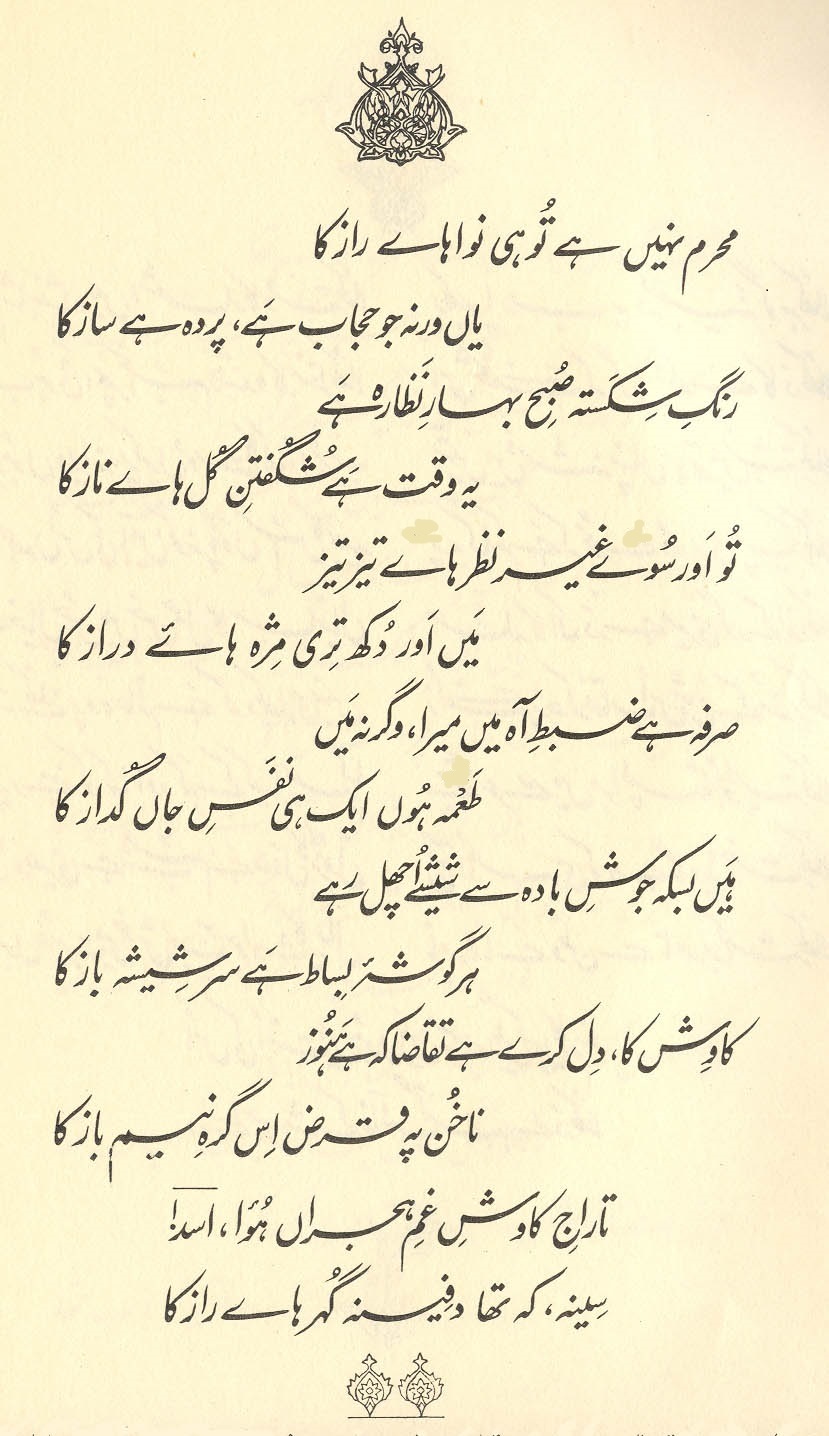 محرم نہیں ہے تُو ہی نوا ہاے راز کا
یاں ورنہ جو حجاب ہَے، پردہ ہے ساز کا
رنگِ شِکَستہ صُبحِ بہارِ نَظارہ ہَے
یہ وقت ہَے شُگُفتنِ گُل ہاے ناز کا
تُو اَور سُوے غیر نظر ہاے تیز تیز
مَیں اَور دُکھ تِری مِژہ ہائے دراز کا
صرفہ ہے ضبطِ آہ میں میرا، وگرنہ مَیں
طَعْمہ ہُوں ایک ہی نَفَسِ جاں گُداز کا
ہَیں بسکہ جوشِ بادہ سے شیشے اُچھل رہے
ہر گوشۂ بِساط ہَے سر شِیشہ باز کا
کاوِش کا، دِل کرے ہے تقاضا کہ ہے ہَنُوز
ناخُن پہ قرض اِس گرہِ نیم باز کا
تاراجِ کاوشِ غمِ ہجراں ہُوٴا، اسدؔ!
سِینہ، کہ تھا دفِینہ گُہر ہاے راز کا